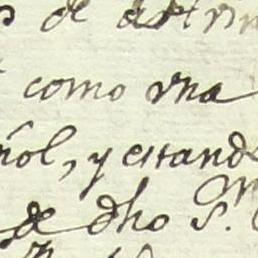 de
como vna
ñol, y estand
de dho S.